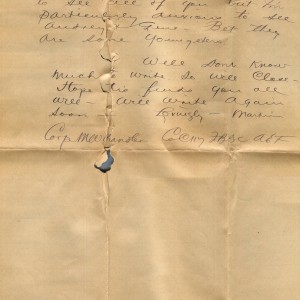 to see all of you but I'm
particularly anxious to see
Audrey + Gene - Bet they
are some Youngsters
Well Dont Know
much to write so will Close -
Hope this finds you all
well - will write again
soon - Lovingly - Martin
Corp Comg AEF